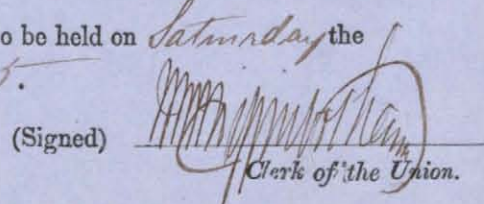 o be held on Saturday the
5.
(Signed)
Clerk of the Union.